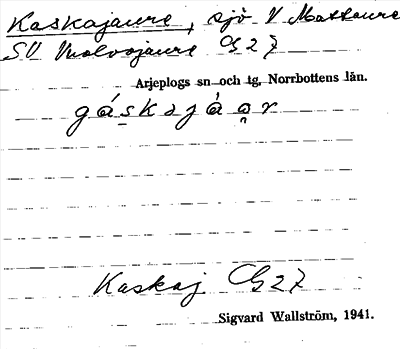 Kaskajaure, sjö V Mattaure
SV Vuolvojaure G27
Arjeplogs sn och tg, Norrbottens län.
gáskajàar
Kaskaj G27
Sigvard Wallström, 1941.